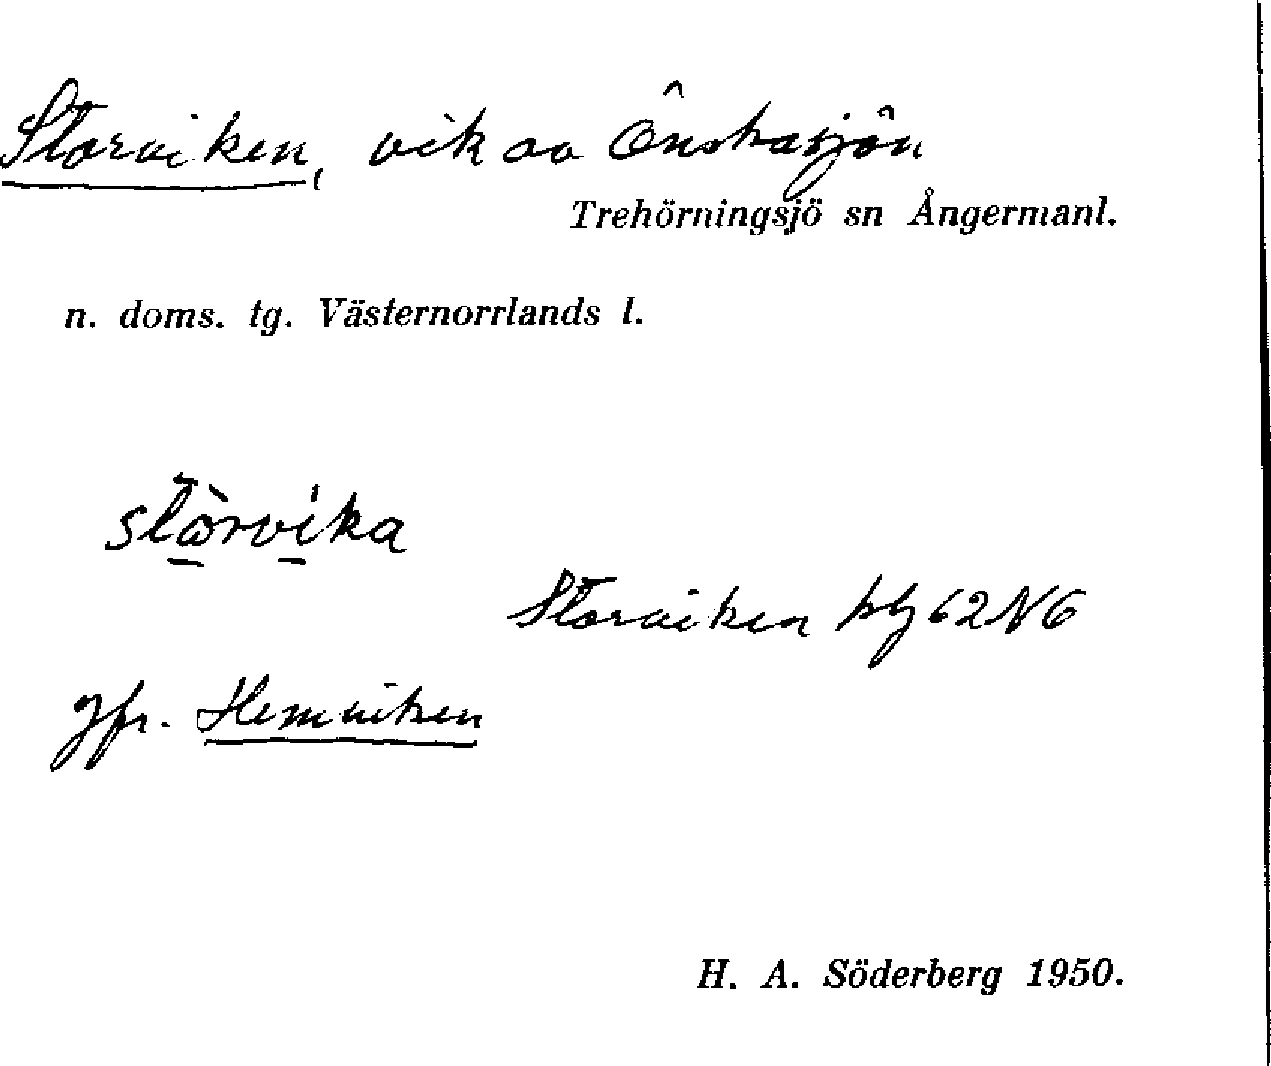 Storviken, vik av Önskasjön
Trehörningsjö sn Ångermanl.
n. doms. tg. Västernorrlands l.
stòrvika
Storviken kbl 62 N6
Jfr. Hemviken
H. A. Söderberg 1950.